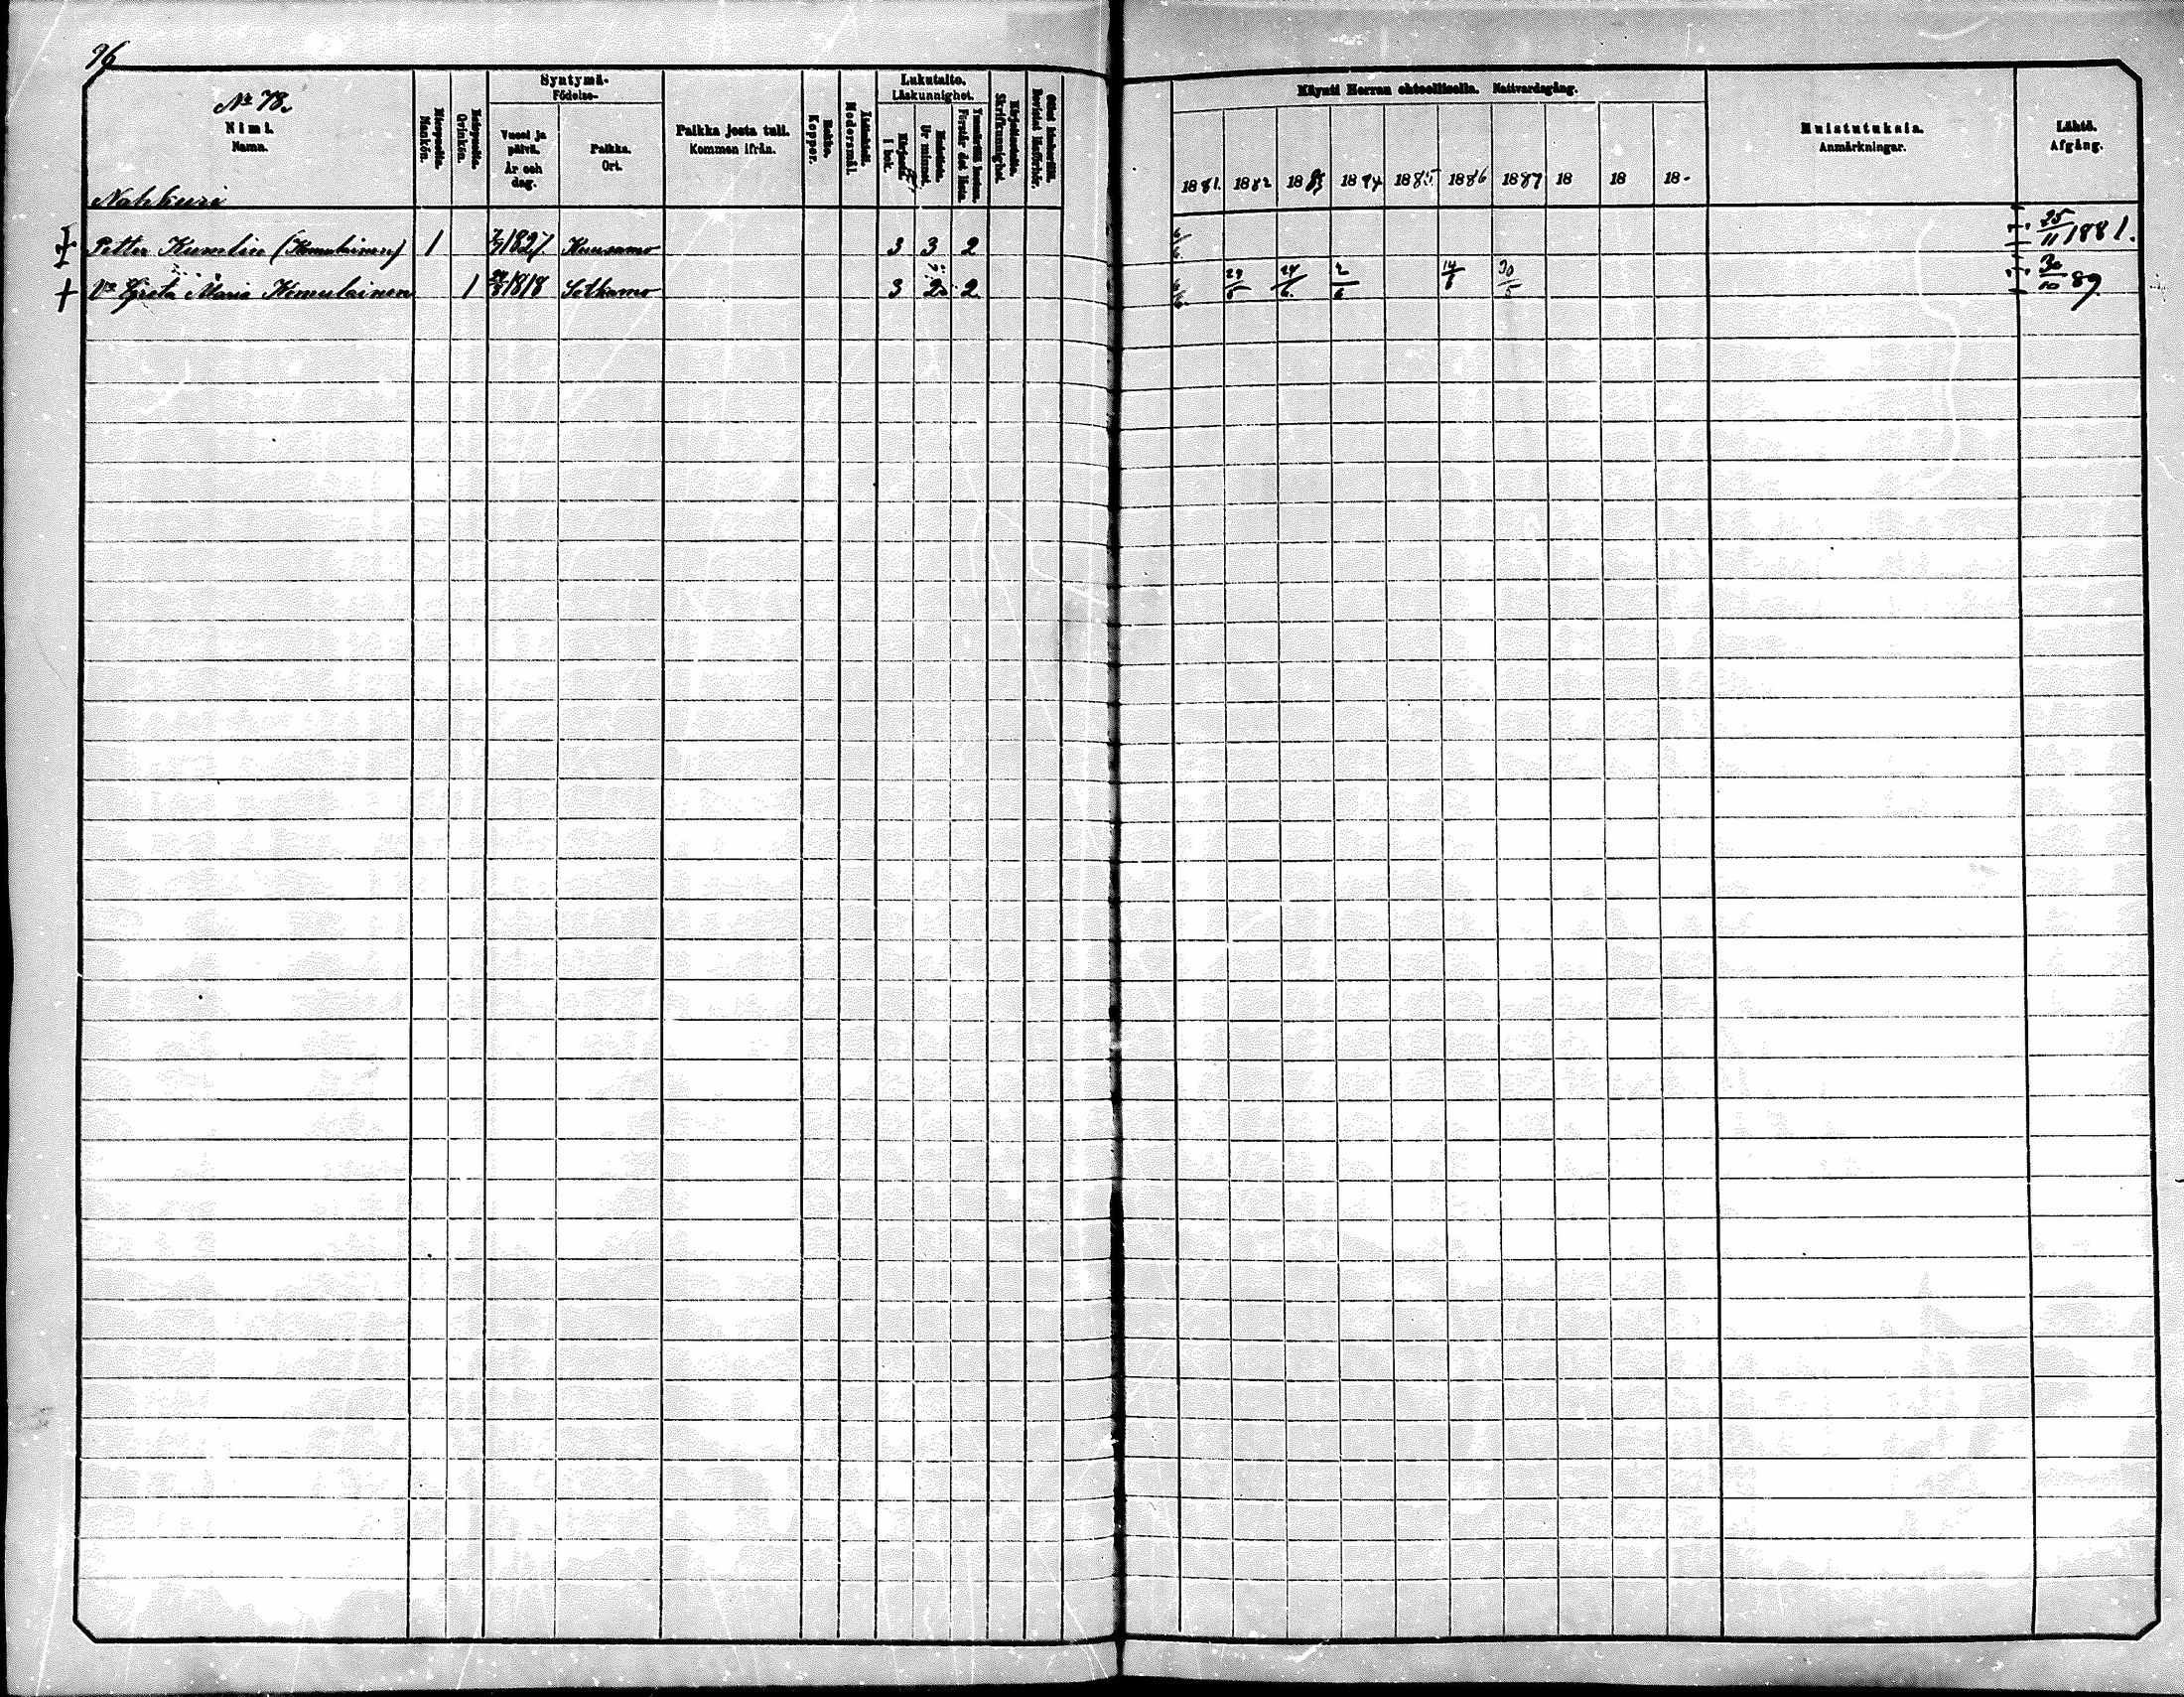 96
№ 78.
Nimi.
Namn.
Nahkuri
Miespuolia.
Mankön.
Qvinkön.
Syntymä-
Födelse-
Vuosi ja päivä.
År och dag.
Paikka.
Ort.
Paikka josta tuli.
Kommen ifrån.
Rokko.
Koppor.
Äidinkieli.
Modersmål.
Lukutaito.
Läskunnighet.
Kirjasta.
I bok.
Muistista.
Ur minnet.
Förstår det lästa.
Kirjoitustaito.
Skrifkunnighet.
Käynti Herran ehtoollisella. Nattvardsgång.
1881. 1882 1883 1884 1885 1886 1887 18 18 18
Muistutuksia.
Anmärkningar.
Lähtö.
Afgång.
Petter Kumlin (Komulainen) 1 1827 Kuusamo 3 3 2 6/6 25/11 1881.
Va Greta Maria Komulainen 1 1818 Sotkamo 3 2 2 6/6 29/5 24/6 2/6 14/6 30/5 30/10 89